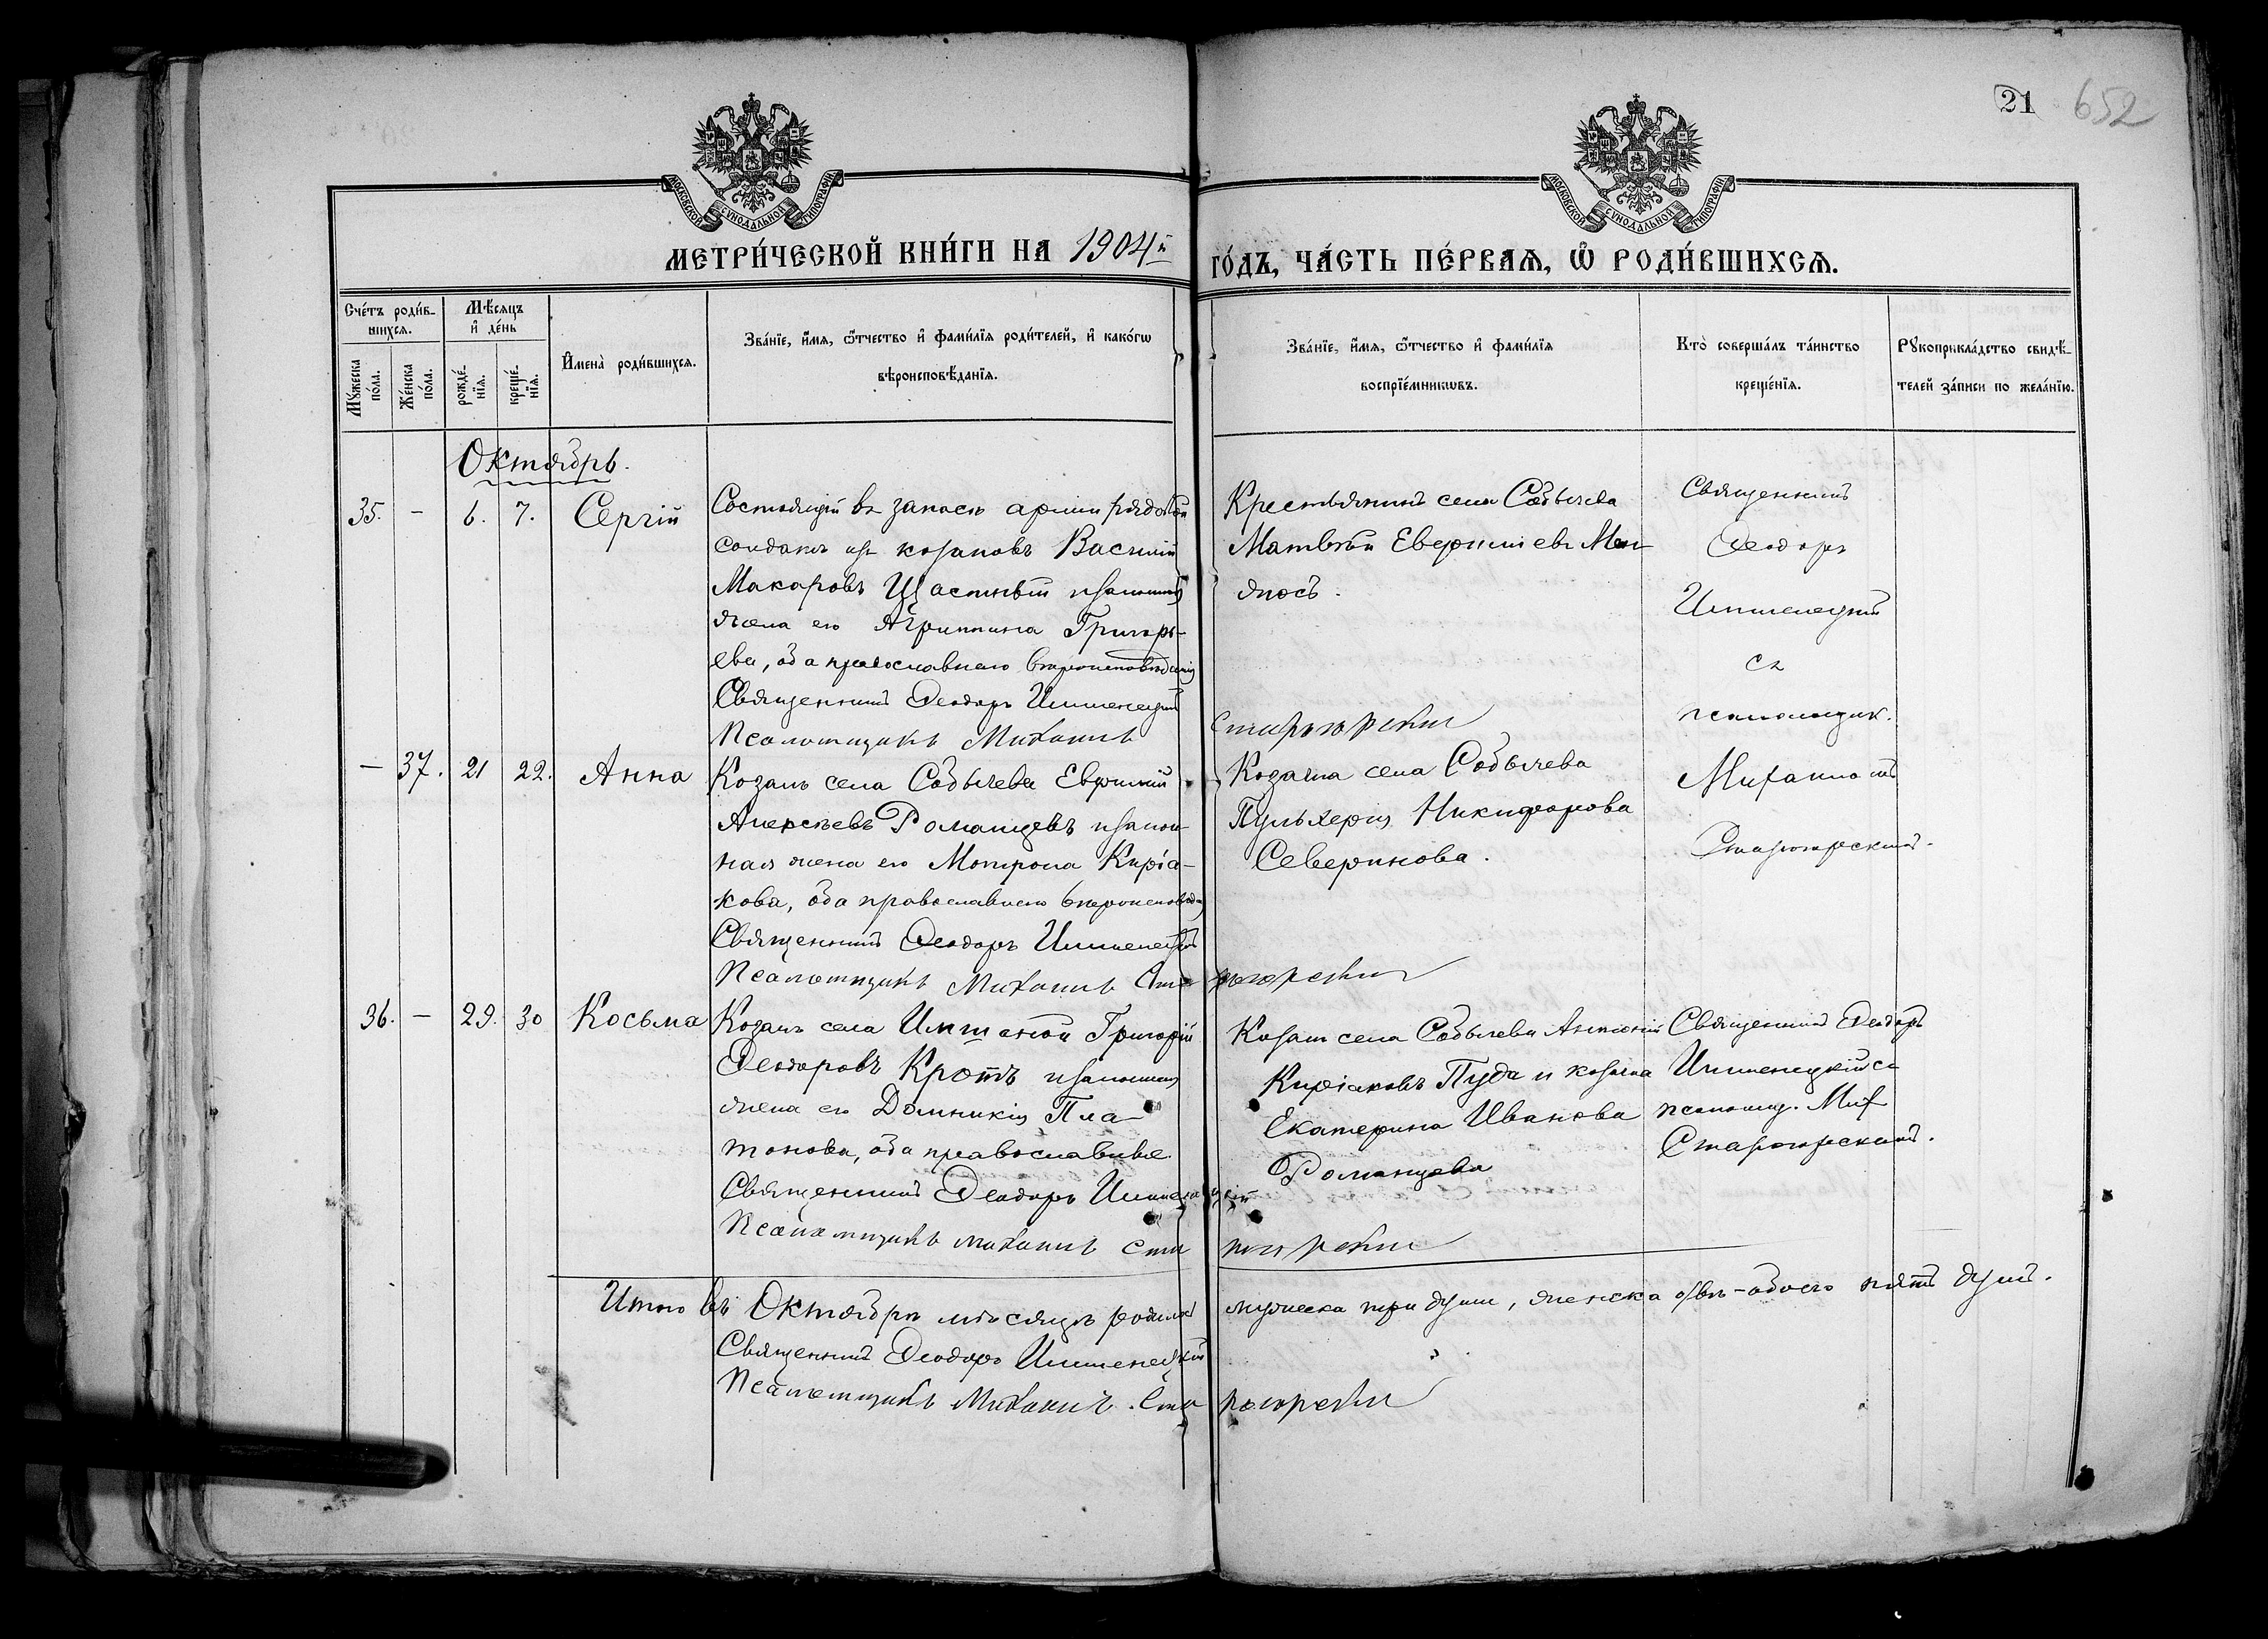 21 652
МОСКОВСКОЙ СѴНОДАЛЬНОЙ ТИПОГРАФІИ
МОСКОВСКОЙ СѴНОДАЛЬНОЙ ТИПОГРАФІИ
МЕТРИ́ЧЕСКОЙ КНИ́ГИ НА 1904й
ГО́ДЪ, ЧА́СТЬ ПЕ́РВАѦ, Ѡ РОДИ́ВШИХСѦ.
Сче́тъ роди́в-
шихсѧ.
Мꙋжеска
по́ла.
Же́нска
по́ла.
Мѣ́сѧцъ
и҆ де́нь
рожде́-
нїѧ.
креще́-
нїѧ.
И҆мена̀ роди́вшихсѧ.
Зва́нїе, и҆́мѧ, ѻ҆́тчество и҆ фами́лїѧ роди́телей, и҆ како́гѡ
вѣроисповѣ́данїѧ.
Зва́нїе, и҆́мѧ, ѻ҆́тчество и҆ фами́лїѧ
воспрїе́мникѡвъ.
Кто̀ соверша́лъ та́инство
креще́нїѧ.
Рꙋкоприкла́дство свидѣ́-
телей за́писи по жела́нїю.
Октябрь.
35. - 6. 7. Сергій
Состоящій въ запасѣ арміи рядовой
солдатъ изъ козаковъ Василій
Макаровъ Щастный и законная
жена его Агриппина Григорь-
ева, оба православнаго вѣроисповѣданія
Священникъ Ѳеодоръ
Псаломщикъ Михаилъ Старогорскій
Крестьянинъ села Собычева
Матвѣй Евфиміевъ
Священникъ
Ѳеодоръ
съ
псаломщик.
Михаиломъ
Старогорскимъ.
- 37. 21 22. Анна
Козакъ села Собычева Евфимій
Алексѣевъ Романцевъ и закон-
ная жена его Матрона Киріа-
кова, оба православнаго вѣроисповѣд.
Священникъ Ѳеодоръ
Псаломщикъ Михаилъ Старогорскій
Козачка села Собычева
Пульхерія Никифорова
Северинова.
36. - 29. 30 Косьма
Козакъ села Григорій
Ѳеодоровъ Кротъ и законная
жена его Домникія Пла-
тонова, оба православные.
Священникъ Ѳеодоръ
Псаломщикъ Михаилъ Старогорскій
Козакъ села Собычева Антоній
Киріаковъ Пуда и козачка
Екатерина Иванова
Романцева
Священникъ Ѳеодоръ
съ
псаломщ. Мих.
Старогорскимъ.
Итого въ Октябрѣ мѣсяцѣ родилось мужеска три души, женска двѣ - обоего пять душъ.
Священникъ Ѳеодоръ
Псаломщикъ Михаилъ Старогорскій